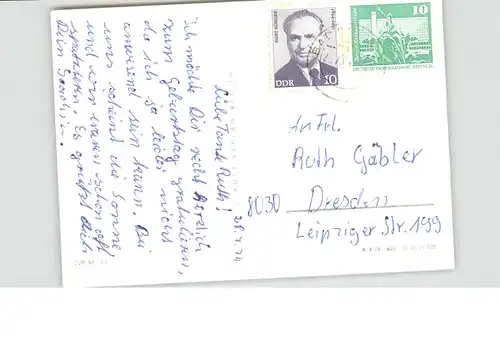 Liebe Tante Ruth! 28.4.74
Ich möchte Dir recht herzlich
zum Geburtstag gratulieren,
da ich ja leider nicht
anwesend sein kann. Bei
uns scheint die Sonne
und wir waren schon oft
spazieren. Es grüßt Dich
Dein
KURT BÜRGER
DDR 10
10
DEUTSCHE DEMOKRATISCHE REPUBLIK
An Frl.
Ruth Gäbler
8030 Dresden
Leipziger Str. 199